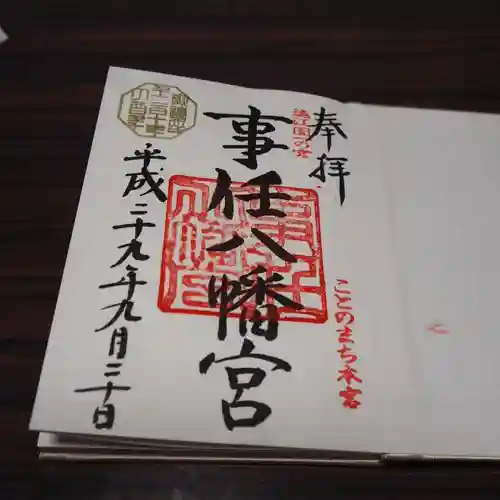 奉拝
遠江国一の宮
ことのまち本宮
事任八幡宮
平成二十九年九月二十日